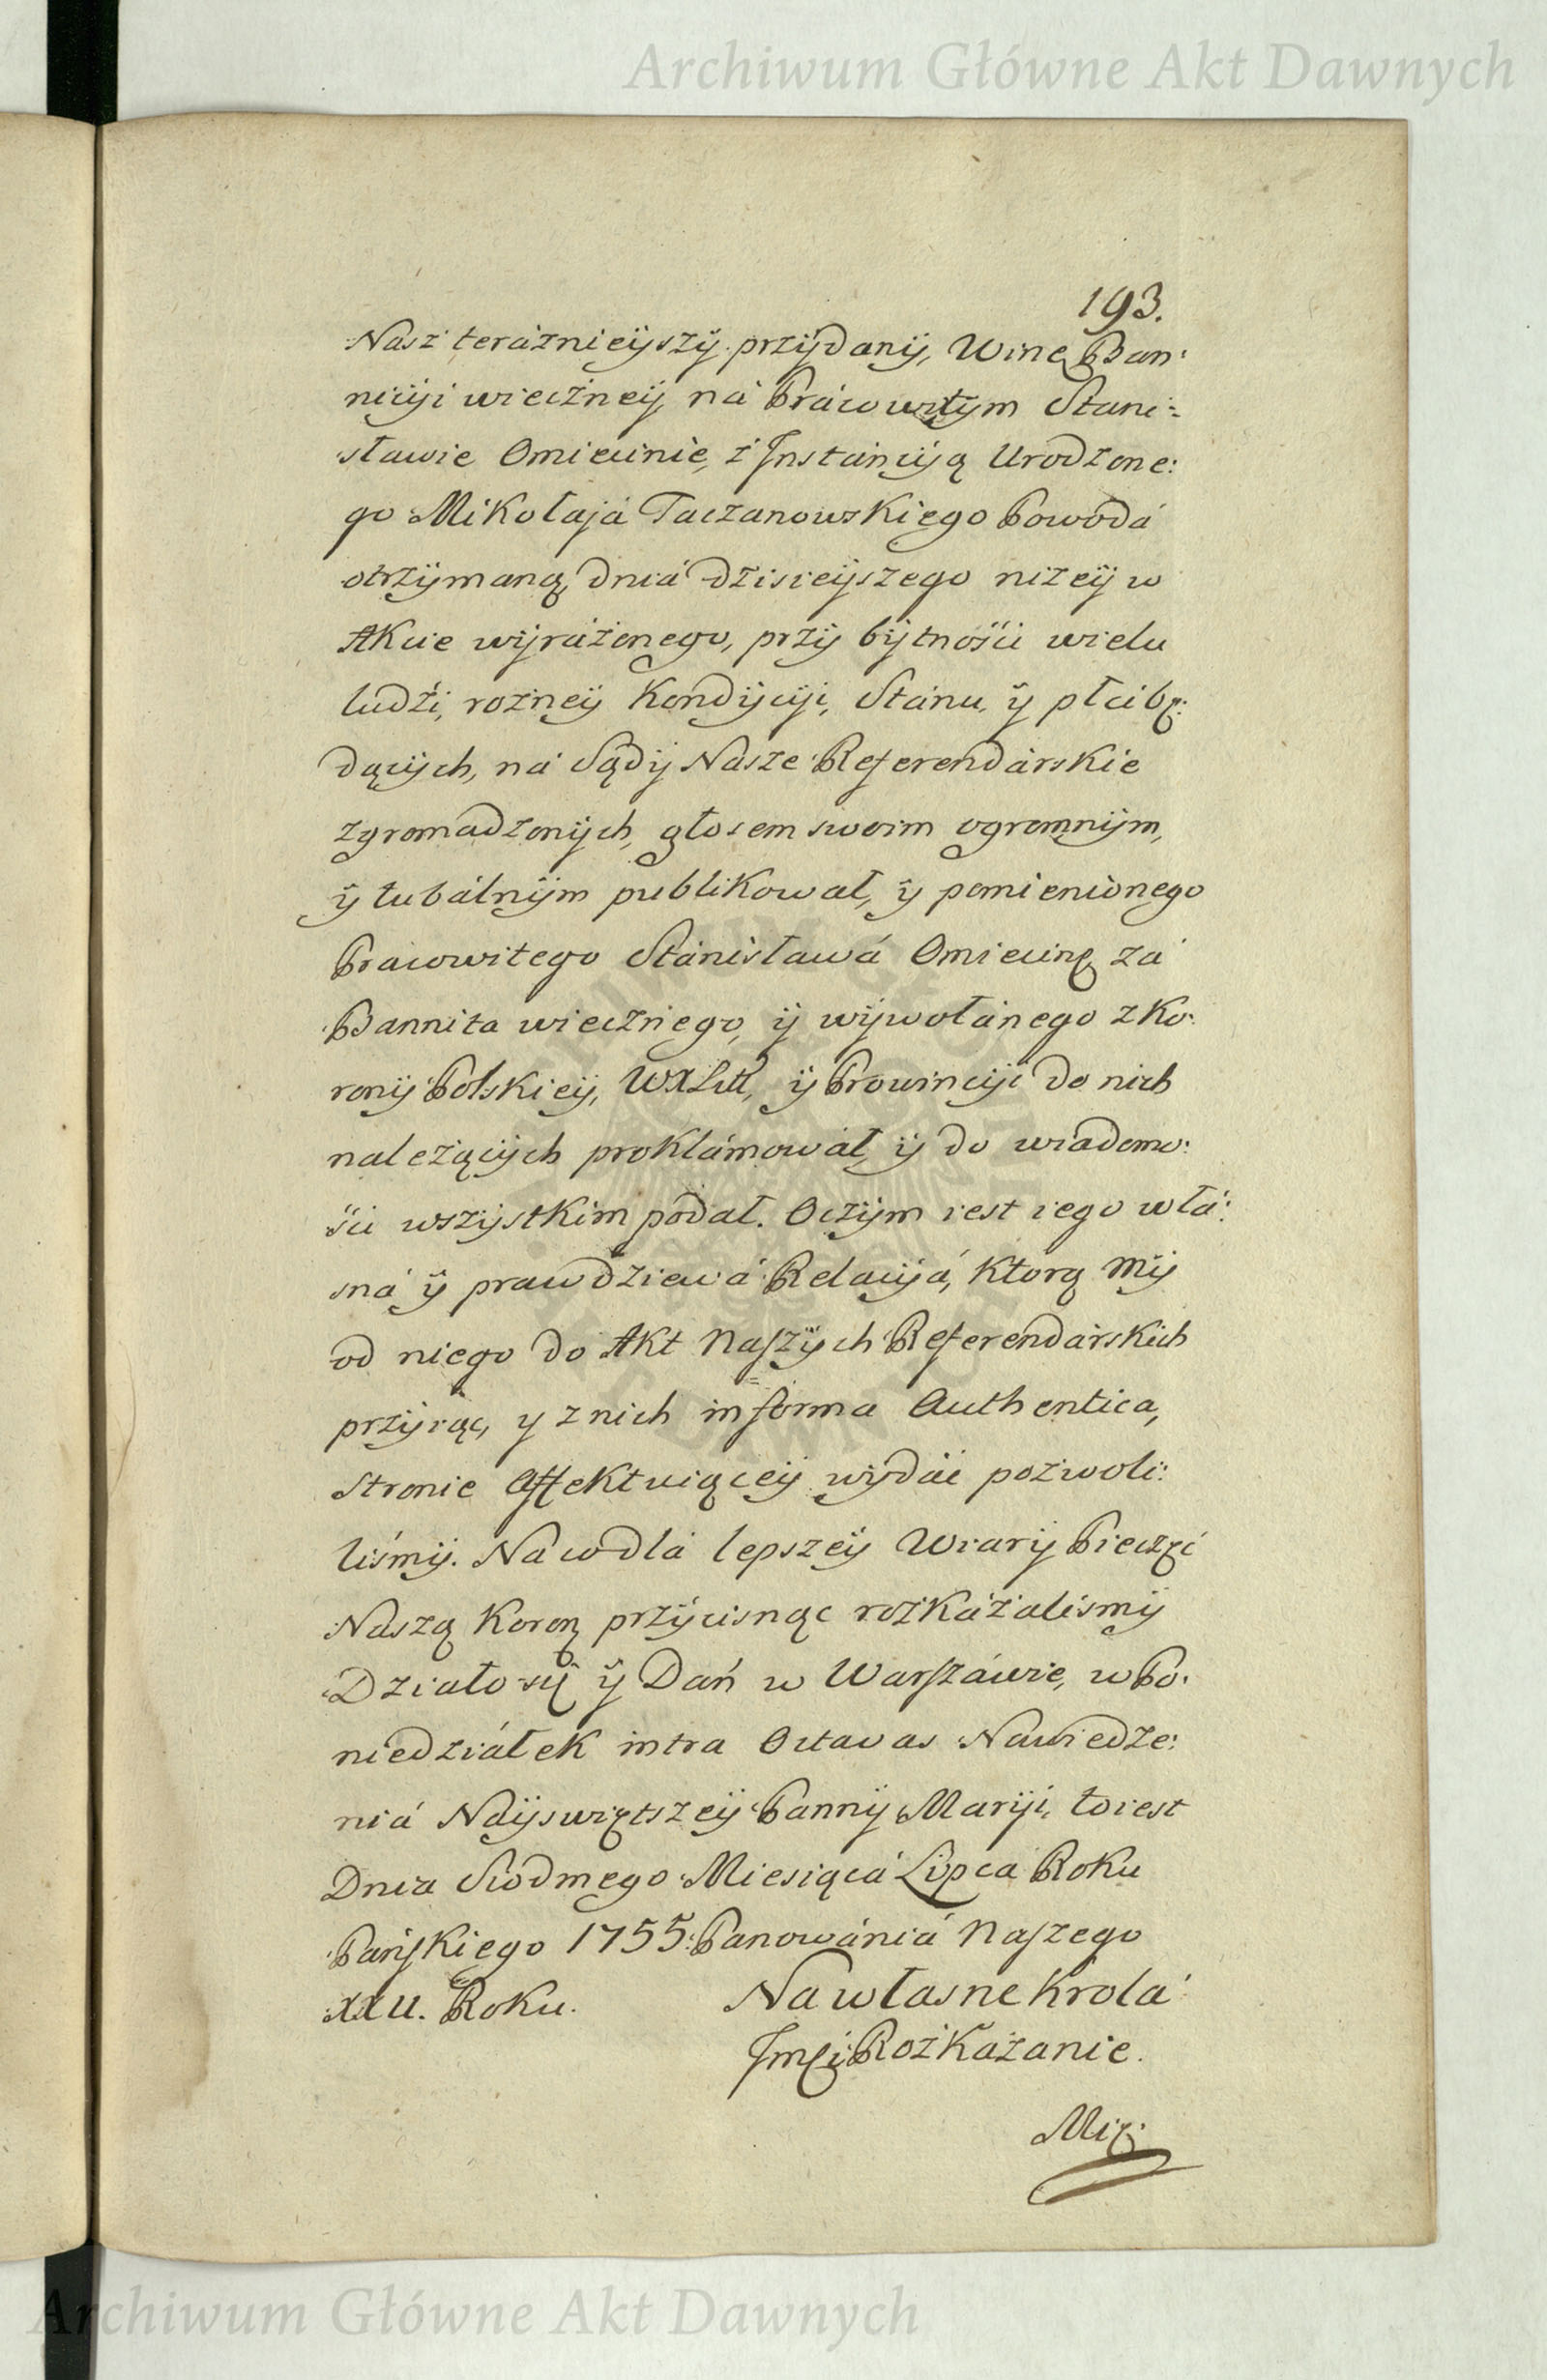 Archiwum Główne Akt Dawnych
193.
Nasz teráznieÿszÿ przÿdanÿ, Winę Ban:
niciji wiecżneÿ ná Prácowitÿm Stani:
sławie Omiecinie, z Instáncÿą Urodzone:
go Mikołajá Taczanowskiego Powodá
otrzÿmaną, dniá dżisieÿszego niżeÿ w
Akcie wÿráżonego, przÿ bÿtnośći wielu
ludźi, rożneÿ Kondÿcÿi, Stánu, ÿ płci bę:
dącÿch, ná Sądÿ Nasze Referendárskie
zgromadzonÿch, głosem swoim ogromnÿm,
ÿ tubálnÿm publikował, ÿ pomienionego
Pracowitego Stánisławá Omiecinę zá
Bannita wiecżnego, ÿ wÿwołánego z Ko:
ronÿ Polskieÿ, WXLitt, ÿ Prowincÿi do nich
należącÿch proklámował, ÿ do wiadomo:
śći wszÿstkim podał. Oczÿm iest iego włá:
sná ÿ prawdziewá Relacÿá, Ktorą Mÿ
od niego do Akt Naszÿch Referendárskich
przÿiąć, y z nich in forma Authentica,
Stronie Affektuiąceÿ wÿdáć pozwoli:
liśmÿ. Ná co dlá lepszeÿ Wiarÿ Pieczęć
Naszą Koroṇ przÿcisnąć rozkázaliśmÿ
Działo się ÿ Dań w Warszáwie, w Po:
niedziáłek intra Octavas Nawiedze:
niá Naÿswiętszeÿ Pannÿ Marÿi, to iest
Dnia Siodmego Miesiącá Lipca Roku
Pańskiego 1755. Panowániá Naszego
XXII. Roku.
Na własne Krolá
Jmći Rozkazanie.
Archiwum Główne Akt Dawnych